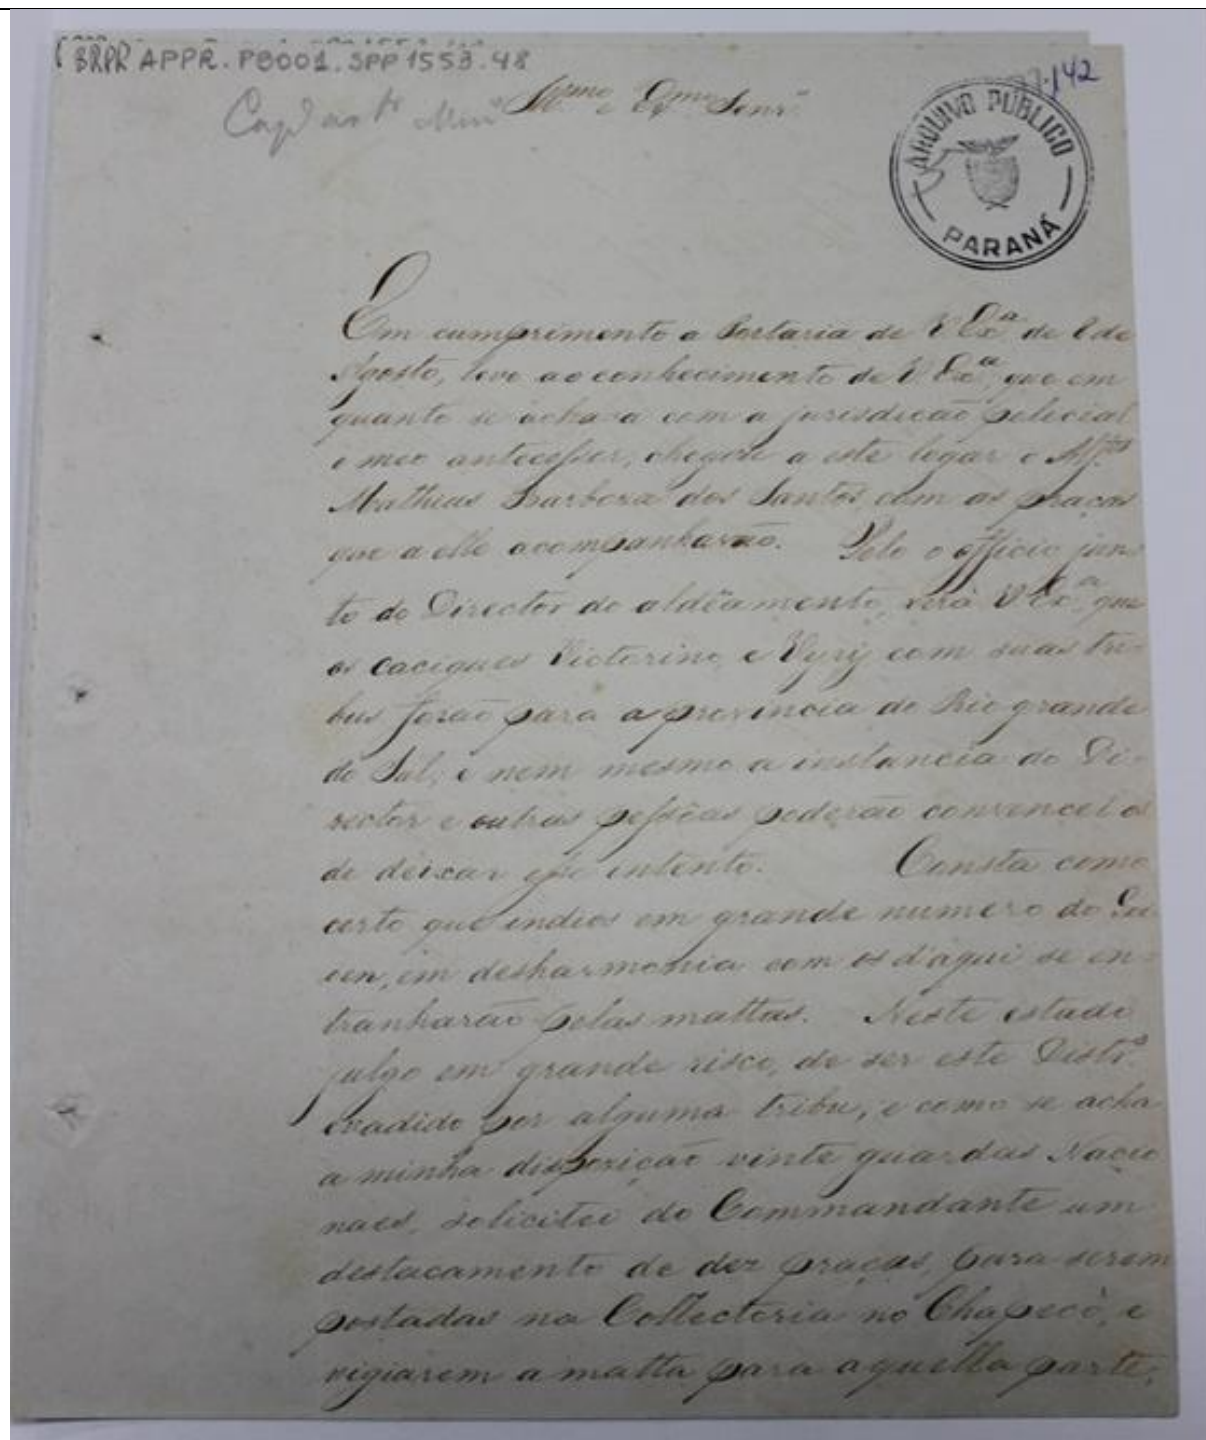 BRPR APPR.PB001.SPP1553.48
142
Illmo e Exmo Senr.
ARQUIVO PÚBLICO
PARANÁ
Em cumprimento a Portaria de V Exª de 2 de
Agosto, levo ao conhecimento de V. Exª, que em
quanto se achava com a jurisdicão policial
o meo antecessor, chegou a este logar o Alfes
Matheus Barboza dos Santos, com as praças
que a elle acompanharão. Pelo o officio jun
to do Director do aldêamento, verá V Exª, que
os caciques Victorino, e Vyrÿ com suas tri
bus forão para a provincia do Rio grande
do Sul, e nem mesmo a instancia do Di-
rector e outras pessôas poderão convencel os
de deixar esse intento. Consta como
certo que indios em grande numero do
em desharmonia com os d'aqui se en
tranharão pelas mattas. Neste estado
julgo em grande risco, de ser este Distrº
evadido por alguma tribu, e como se acha
a minha disposição vinte guardas Nacio
naes, solicitei do Commandante um
destacamento de dez praças, para serem
postadas na Collectoria no Chapecò, e
vigiarem a matta para aquella parte,